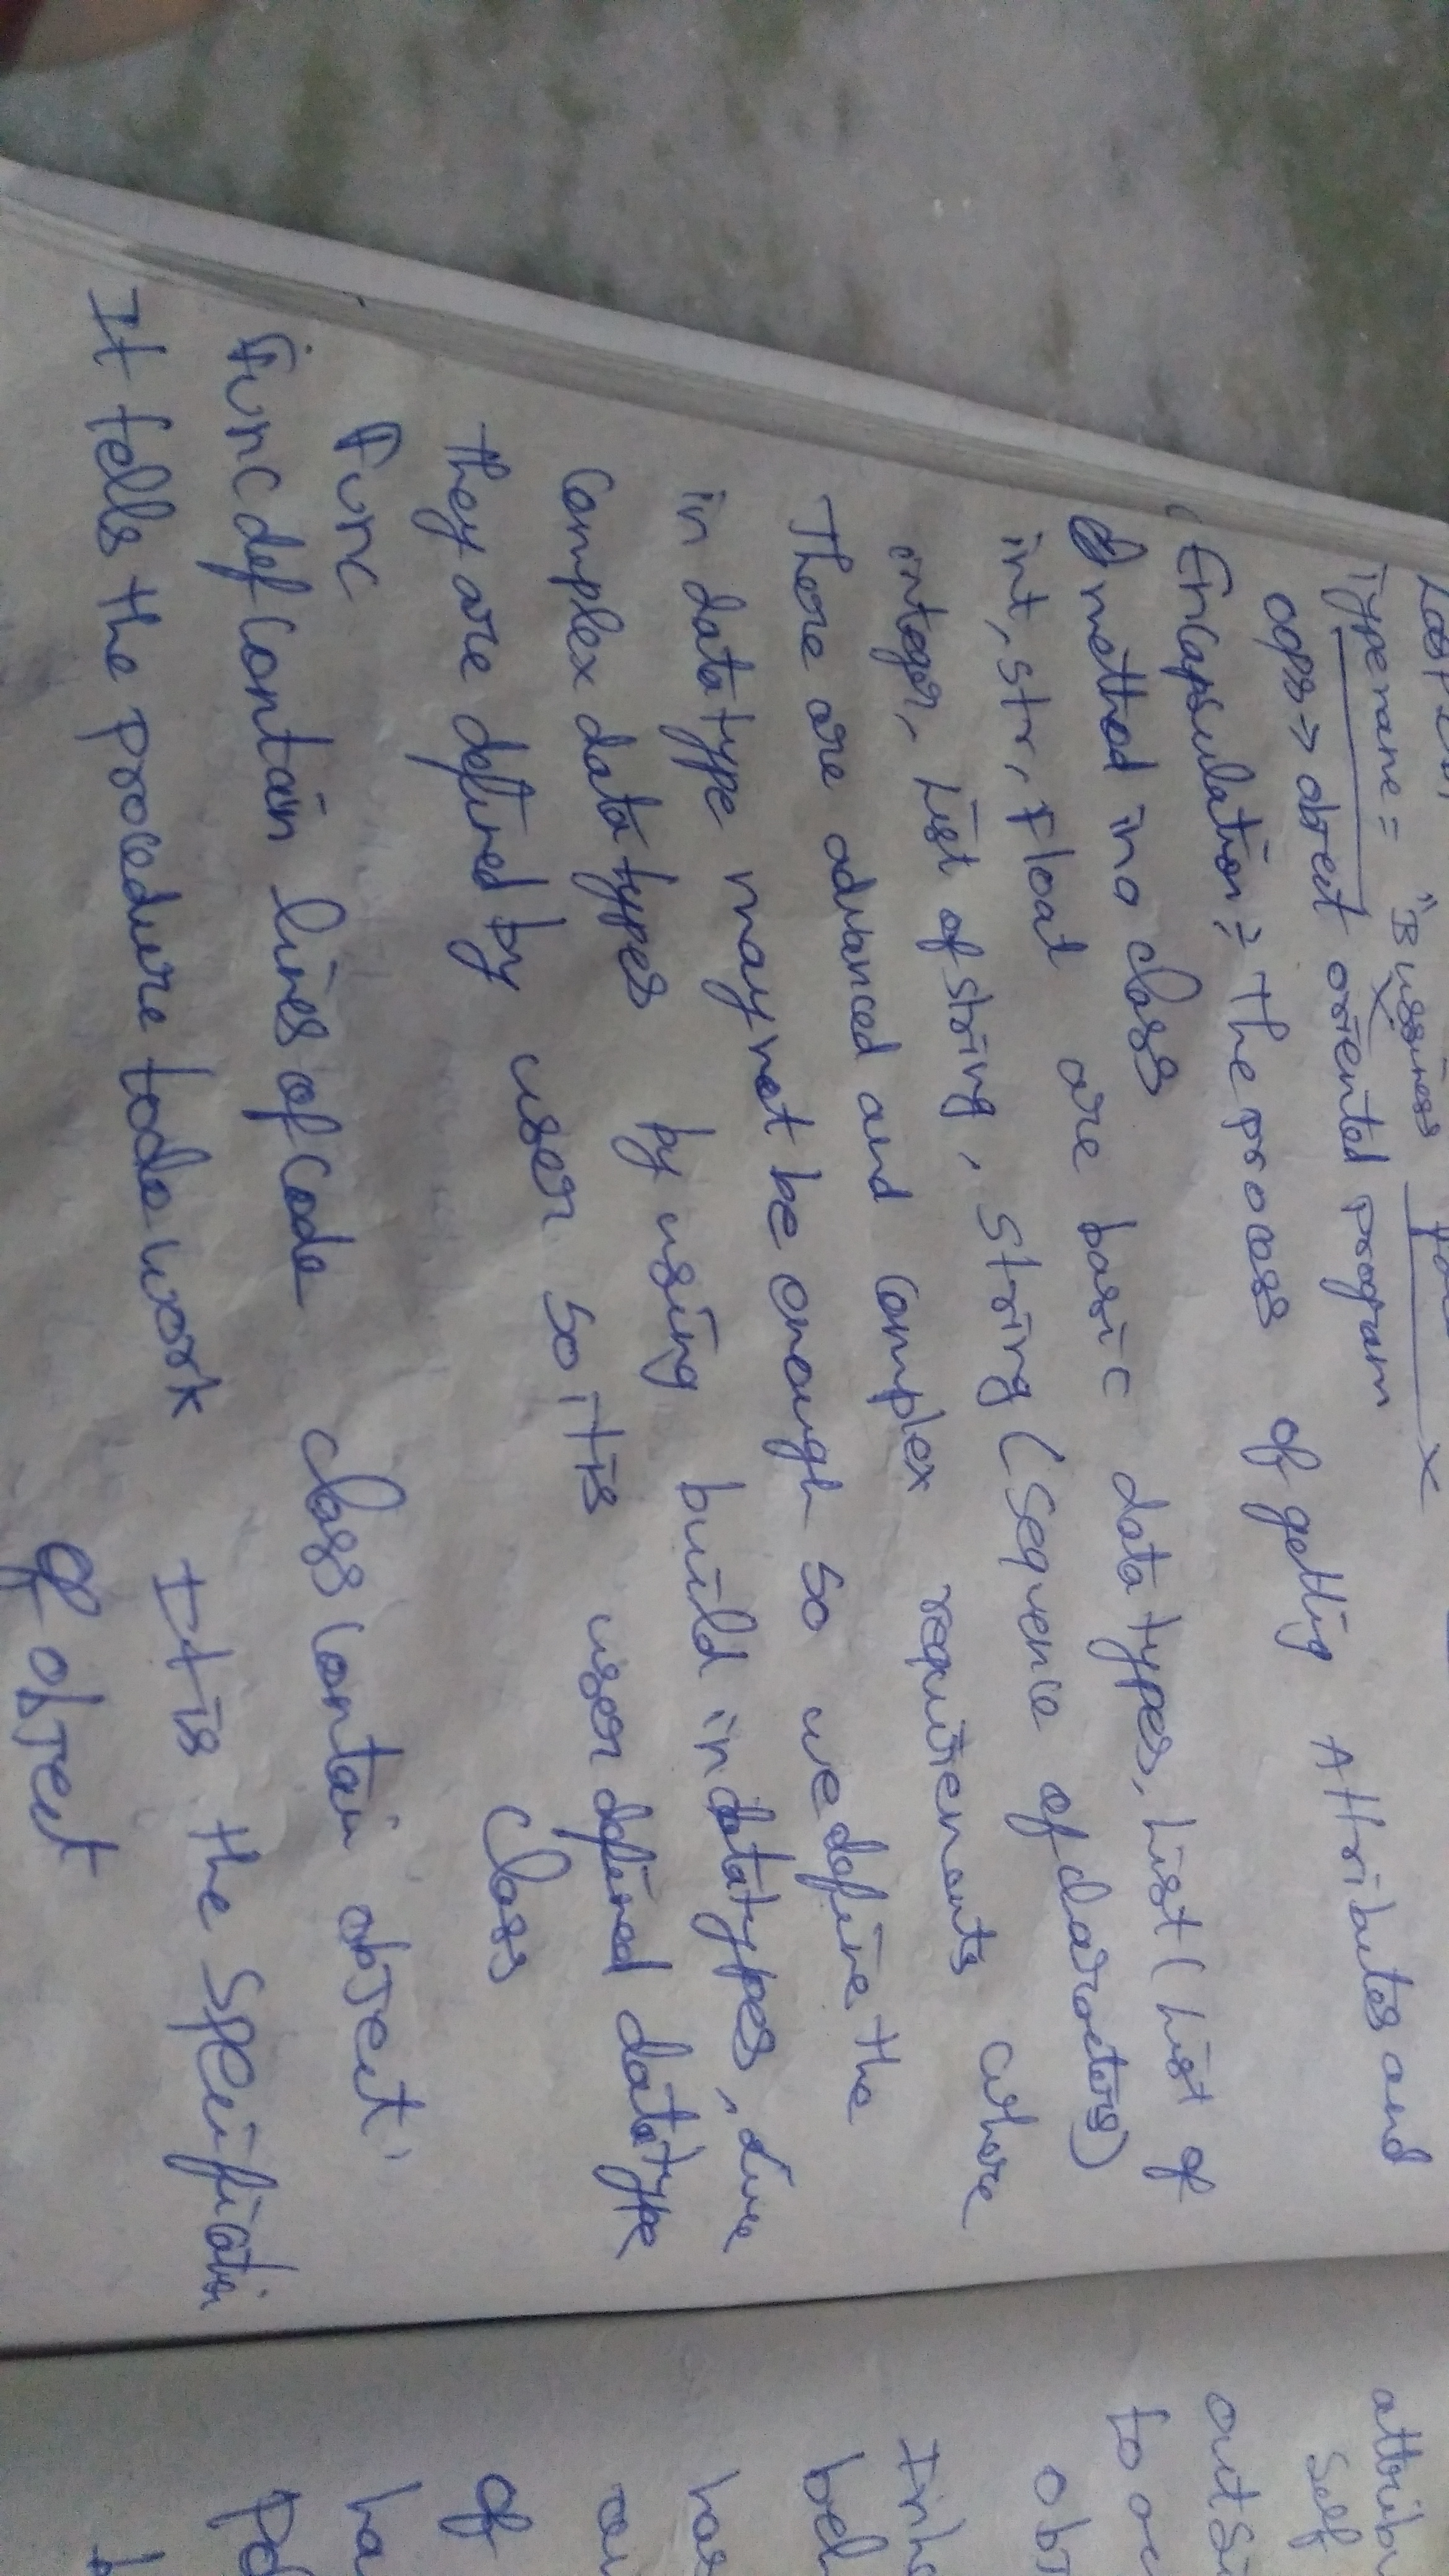 Typename = "Bussiness
oops => obJect oriented program
Encapsulation : The process of getting Attributes and
method in a class
int, str, Float are basic data types, List (List of
integer, List of string, string (sequence of characters)
There are advanced and complex requirements where
in data type may not be enough so we define the
complex data types by using build in datatypes,
they are defined by user so it is user defined datatype
Func class
Func def contain lines of code class contain obJect
It tells the procedure to do work It is the specification
of obJect
attribu
self
outsi
to
obJ
Inh
beh
has
of
ha